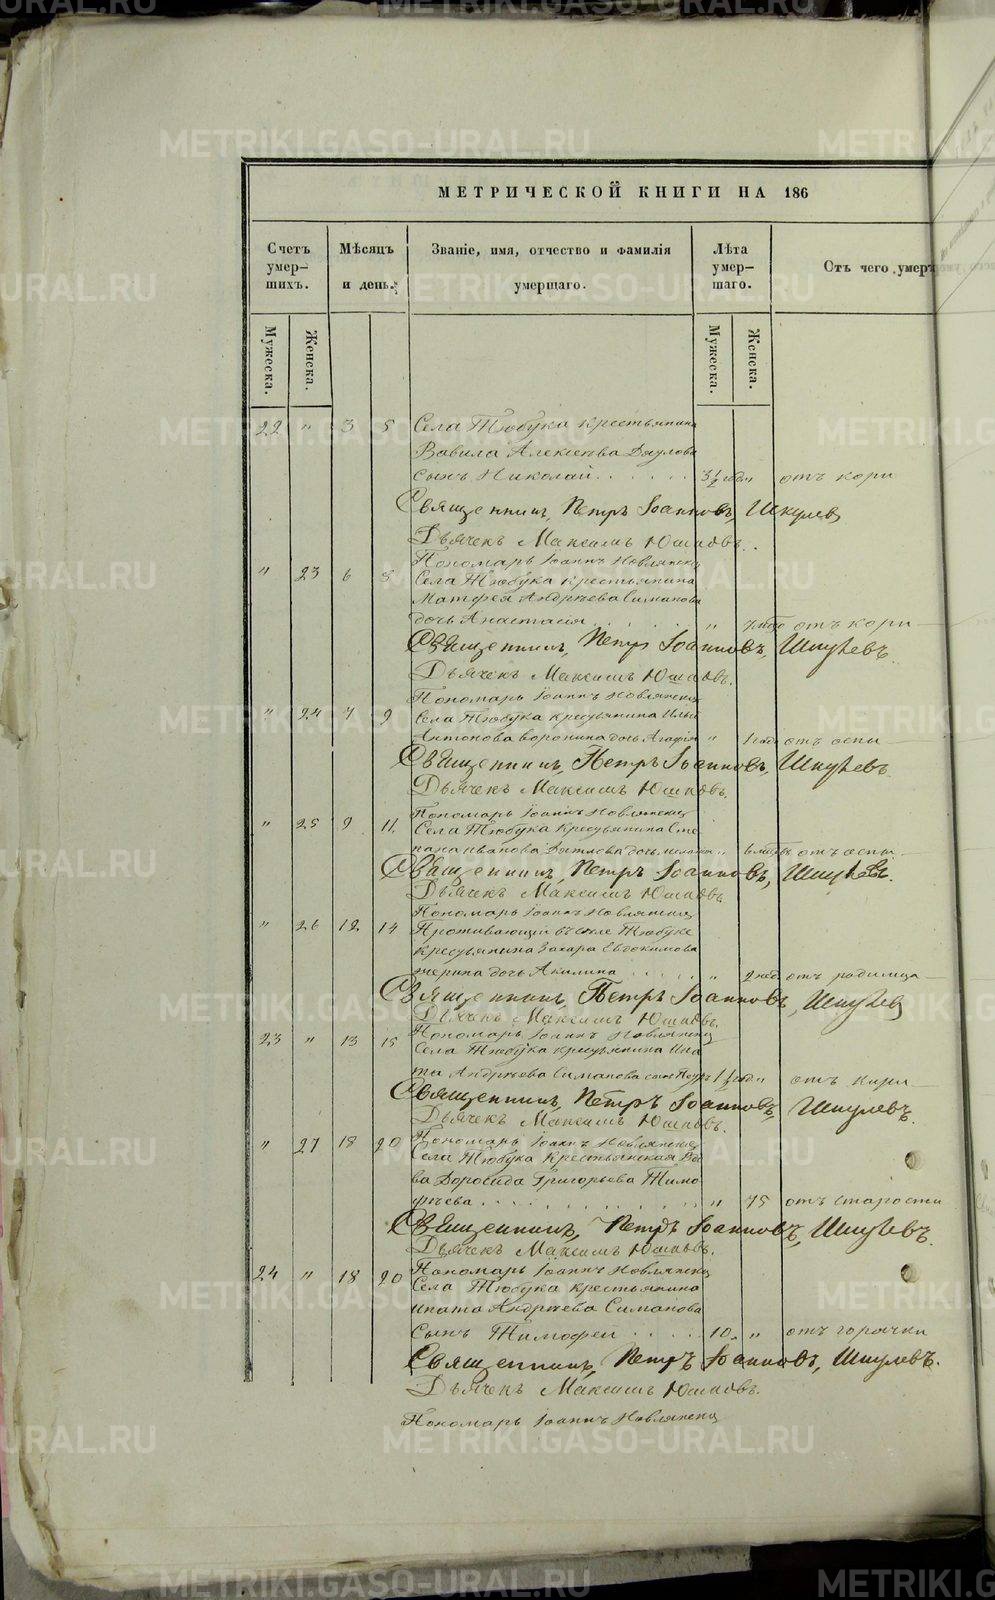 МЕТРИЧЕСКОЙ КНИГИ НА 186
Счетъ умер-шихъ.
Мѣсяцъ и день.
Званіе, имя, отчество и фамилія умершаго.
Лѣта умер-шаго.
Отъ чего умеръ
Мужеска.
Женска.
Мужеска.
Женска.
22 " 3 5 Села Тюбука крестьянина
Вавила Алексѣева
сынъ Николай 3½ года " отъ кори
Священникъ Петръ Іоанновъ Шкулев
Дьячекъ Максимъ Юшковъ.
Пономарь Іоаннъ Новлянскій
" 23 6 8 Села Тюбука крестьянина
Матфея Андрѣева Симанова
дочь Анастасія " отъ кори
Священникъ Петръ Іоанновъ Шкулевъ
Дьячекъ Максимъ Юшковъ.
Пономарь Іоаннъ Новлянскій
" 24 7 9 Села Тюбука крестьянина Ильи
Антонова Воронина дочь Агафія " 1 года отъ оспы
Священникъ Петръ Іоанновъ Шкулевъ
Дьячекъ Максимъ Юшковъ.
Пономарь Іоаннъ Новлянскій
" 25 9 11 Села Тюбука крестьянина Сте
пана Иванова дочь " отъ оспы
Священникъ Петръ Іоанновъ Шкулевъ.
Дьячекъ Максимъ Юшковъ
Пономарь Іоаннъ Новлянскій
" 26 12 14 Проживающій въ селе Тюбуке
крестьянина Захара Евдокимова
дочь Акилина " 2 нед отъ родимца
Священникъ Петръ Іоанновъ Шкулев
Дьячекъ Максимъ Юшковъ.
Пономарь Іоаннъ Новлянскій
23 " 13 15 Села Тюбука крестьянина Ипа
та Андрѣева Симанова сынъ Петръ 1½ год " отъ кори
Священникъ Петръ Іоанновъ Шкулевъ.
Дьячекъ Максимъ Юшковъ.
Пономарь Іоаннъ Новлянскій
" 27 18 20 Села Тюбука крестьянская вдо
ва Доросида Григорьева Тимо
фѣева " 75 отъ старости
Священникъ Петръ Іоанновъ Шкулевъ.
Дьячекъ Максимъ Юшковъ.
Пономарь Іоаннъ Новлянскій
24 " 18 20 Села Тюбука крестьянина
Ипата Андрѣева Симанова
сынъ Тимофей 10. " отъ горячки
Священникъ Петръ Іоанновъ Шкулевъ.
Дьячекъ Максимъ Юшковъ.
Пономарь Іоаннъ Новлянскій
METRIKI.GASO-URAL.RU